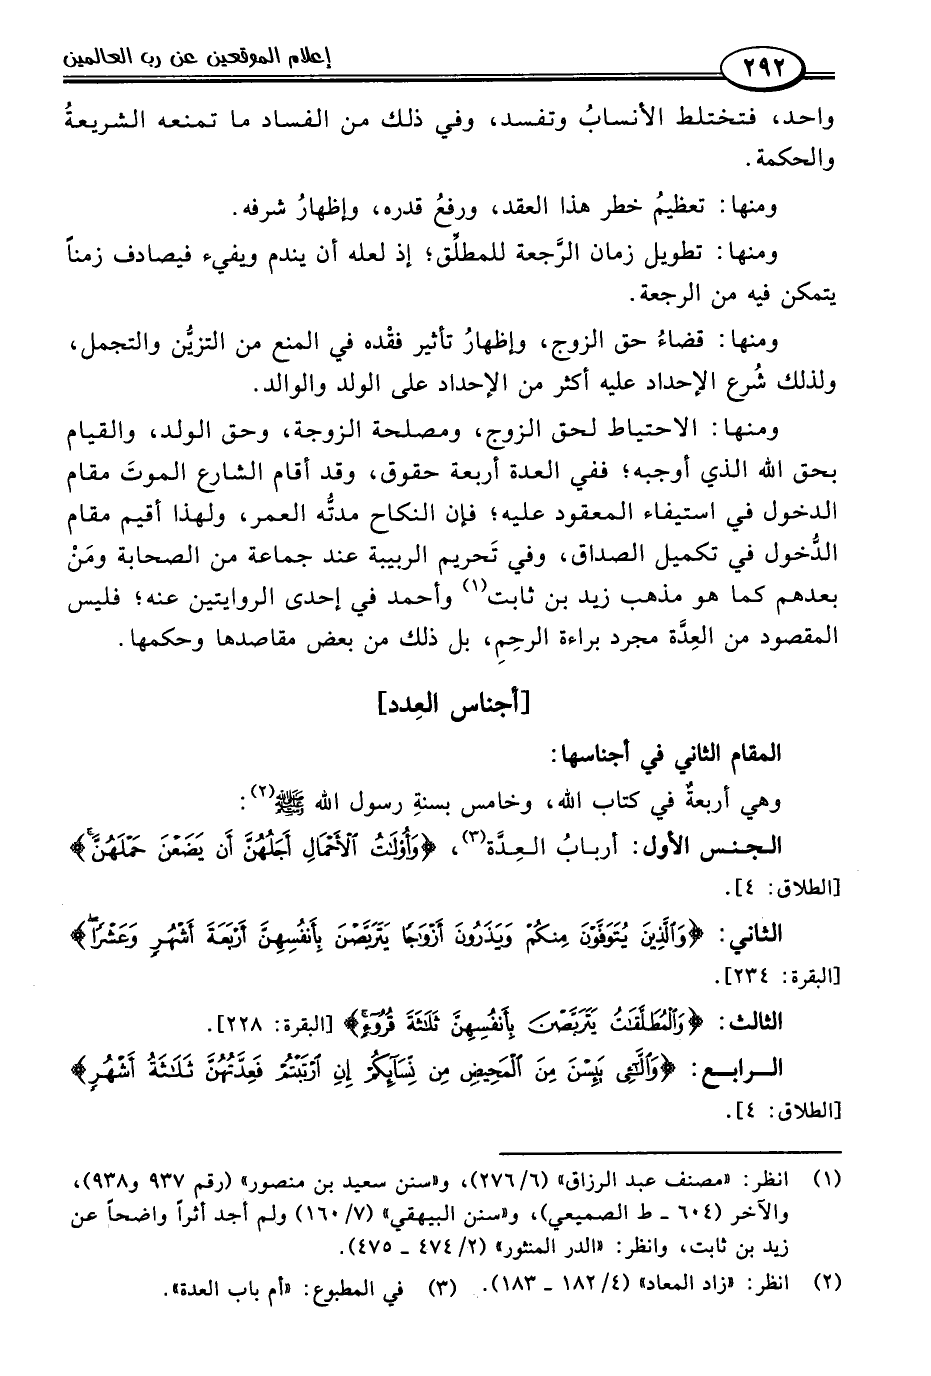 إعلام الموقعين عن رب العالمين
٢٩٢
واحد، فتختلط الأنسابُ وتفسد، وفي ذلك من الفساد ما تمنعه الشريعةُ
والحكمة.
ومنها: تعظيمُ خطر هذا العقد، ورفعُ قدره، وإظهارُ شرفه.
ومنها: تطويل زمان الرَّجعة للمطلِّق؛ إذ لعله أن يندم ويفيء فيصادف زمناً
يتمكن فيه من الرجعة.
ومنها: قضاءُ حق الزوج، وإظهارُ تأثير فقْده في المنع من التزيُّن والتجمل،
ولذلك شُرع الإحداد عليه أكثر من الإحداد على الولد والوالد.
ومنها: الاحتياط لحق الزوج، ومصلحة الزوجة، وحق الولد، والقيام
بحق الله الذي أوجبه؛ ففي العدة أربعة حقوق، وقد أقام الشارع الموتَ مقام
الدخول في استيفاء المعقود عليه؛ فإن النكاح مدتُّه العمر، ولهذا أقيم مقام
الدُّخول في تكميل الصداق، وفي تَحريم الربيبة عند جماعة من الصحابة ومَنْ
بعدهم كما هو مذهب زيد بن ثابت(١) وأحمد في إحدى الروايتين عنه؛ فليس
المقصود من العِدَّة مجرد براءة الرحِمِ، بل ذلك من بعض مقاصدها وحكمها.
[أجناس العِدد]
المقام الثاني في أجناسها:
وهي أربعةٌ في كتاب الله، وخامس بسنةِ رسول الله ﷺ(٢):
الجنس الأول: أربابُ العِدَّة(٣)، ﴿وَأُوْلَٰتُ ٱلْأَحْمَالِ أَجَلُهُنَّ أَن يَضَعْنَ حَمْلَهُنَّ﴾
[الطلاق: ٤].
الثاني: ﴿وَٱلَّذِينَ يُتَوَفَّوْنَ مِنكُمْ وَيَذَرُونَ أَزْوَٰجًا يَتَرَبَّصْنَ بِأَنفُسِهِنَّ أَرْبَعَةَ أَشْهُرٍ وَعَشْرًاۖ﴾
[البقرة: ٢٣٤].
الثالث: ﴿وَٱلْمُطَلَّقَٰتُ يَتَرَبَّصْنَ بِأَنفُسِهِنَّ ثَلَٰثَةَ قُرُوٓءٍۚ﴾ [البقرة: ٢٢٨].
الرابع: ﴿وَٱلَّٰٓـِٔى يَئِسْنَ مِنَ ٱلْمَحِيضِ مِن نِّسَآئِكُمْ إِنِ ٱرْتَبْتُمْ فَعِدَّتُهُنَّ ثَلَٰثَةُ أَشْهُرٍ﴾
[الطلاق: ٤].
(١) انظر: «مصنف عبد الرزاق» (٦/ ٢٧٦)، و«سنن سعيد بن منصور» (رقم ٩٣٧ و٩٣٨)،
والآخر (٦٠٤ ـ ط الصميعي)، و«سنن البيهقي» (٧/ ١٦٠) ولم أجد أثراً واضحاً عن
زيد بن ثابت، وانظر: «الدر المنثور» (٢/ ٤٧٤ ـ ٤٧٥).
(٢) انظر: «زاد المعاد» (٤/ ١٨٢ ـ ١٨٣). (٣) في المطبوع: «أم باب العدة».